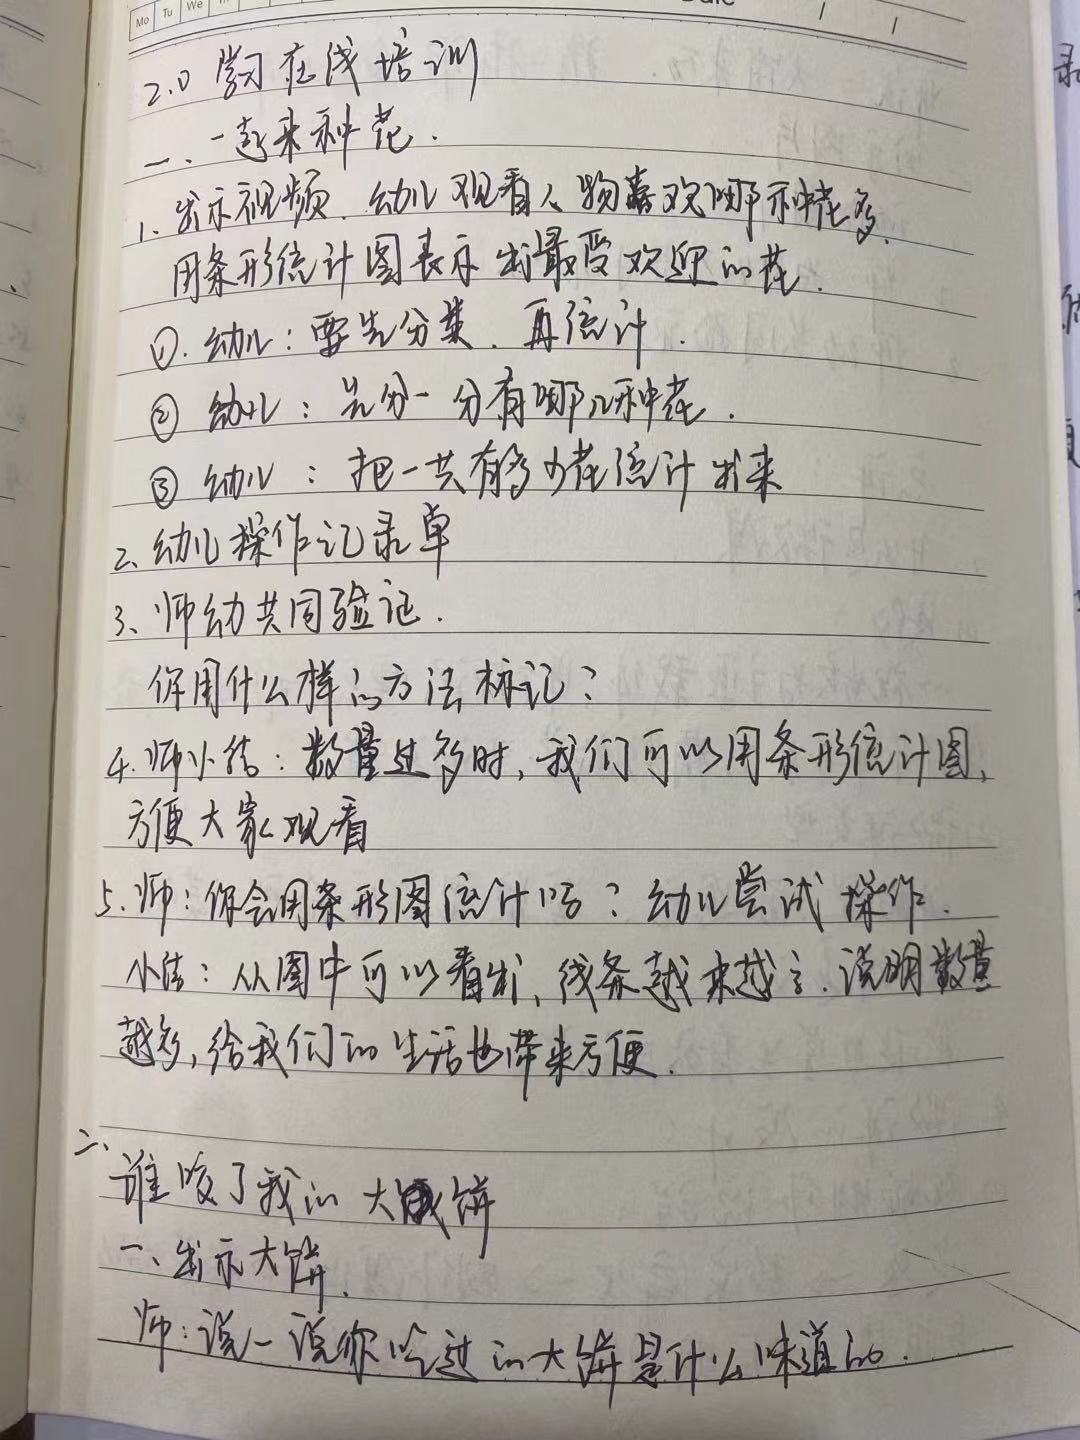 Mo Tu We
Date / /
2.0 学习在线培训
一、一起来种花.
1、出示视频、幼儿观看人物喜欢哪种花多.
用条形统计图表示出最受欢迎的花.
①. 幼儿：要先分类、再统计.
② 幼儿：先分一分有哪几种花.
③ 幼儿：把一共有多少花统计出来
2、幼儿操作记录单
3、师幼共同验证.
你用什么样的方法标记？
4. 师小结：数量过多时，我们可以用条形统计图、
方便大家观看
5. 师：你会用条形图统计吗？幼儿尝试操作.
小结：从图中可以看出、线条越来越高. 说明数量
越多，给我们的生活也带来方便.
二、
谁咬了我的大饼
一、出示大饼.
师：说一说你吃过的大饼是什么味道的.